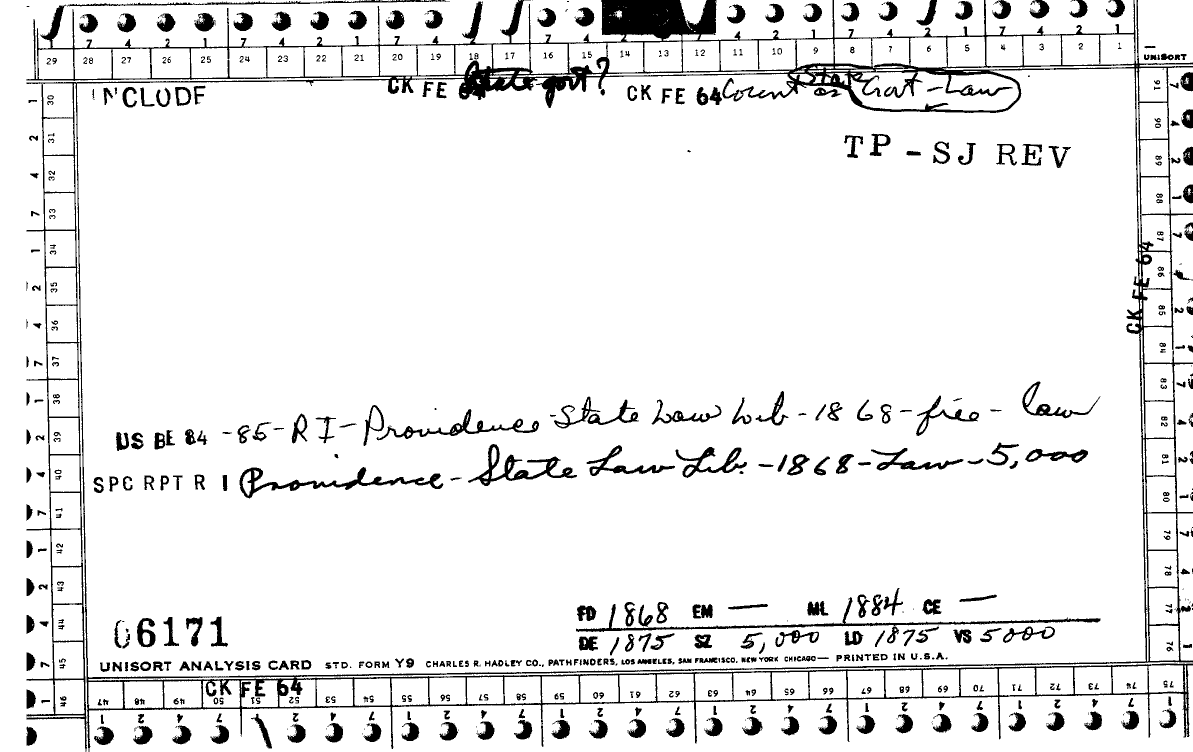 7 4 2 1 7 4 2 1 7 4 7 4 2 1 7 4 2 1 7 4 2 1
29 28 27 26 25 24 23 22 21 20 19 18 17 16 15 14 13 12 11 10 9 8 7 6 5 4 3 2 1
UNISORT
INCLUDE CK FE 64 State govt? CK FE 64 Count State or Govt - Law
TP - SJ REV
CK FE 64
US BE 84 -85-RI-Providence-State Law Lib-1868-free-law
SPC RPT R I Providence-State Law Lib.-1868-Law-5,000
FD 1868 EM — ML 1884 CE —
DE 1875 SZ 5,000 LD 1875 VS 5000
06171
UNISORT ANALYSIS CARD STD. FORM Y9 CHARLES R. HADLEY CO., PATHFINDERS, LOS ANGELES, SAN FRANCISCO, NEW YORK CHICAGO— PRINTED IN U.S.A.
CK FE 64
47 48 49 50 51 52 53 54 55 56 57 58 59 60 61 62 63 64 65 66 67 68 69 70 71 72 73 74 75
1 2 4 7 1 2 4 7 1 2 4 7 1 2 4 7 1 2 4 7 1 2 4 7 1
1 30
2 31
4 32
7 33
1 34
2 35
4 36
7 37
1 38
2 39
4 40
7 41
1 42
2 43
4 44
7 45
1 46
91
90
89
88
87
86
85
84
83
82
81
80
79
78
77
76